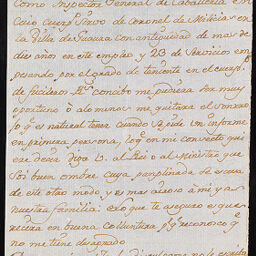 Como Inspector General de Caballeria en
Cuio Cuerpo sirvo de Coronel de Milicias en
la Villa de Guaura con antiguedad de mas de
diez años en este empleo y 23 de Servicios em
pesando por el grado de teniente en el cuerpo
de fucileros concibo me pudiera ser muy
oportuno o alo menos me quitara el sonrojo
q es natural tener quando se pide un informe
en primera persona, en mi consecto qui
ere decir diga V. al Rei o al Ministro que
soi buen ombre cuya escusa
de este otro modo y es mas airoso a mi y a
nuestra familia: es lo que te aseguro es que
recera en buena coiuntura pr q reconosco q
no me tiene desagrado